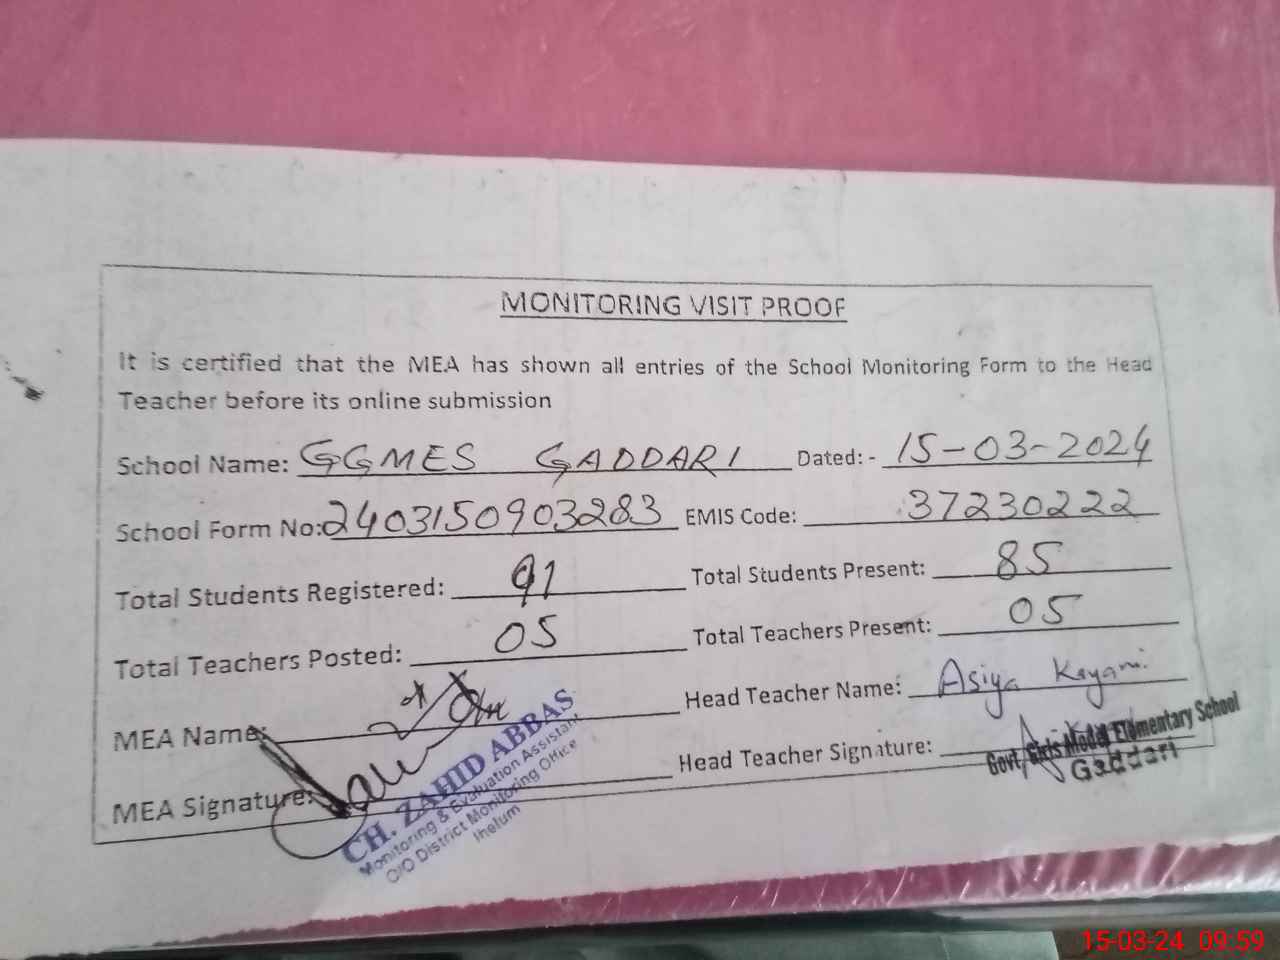 MONITORING VISIT PROOF
It is certified that the MEA has shown all entries of the School Monitoring Form to the Head
Teacher before its online submission
School Name: GGMES GADDARI Dated: - 15-03-2024
School Form No: 2403150903283 EMIS Code: 37230222
Total Students Registered: 91 Total Students Present: 85
Total Teachers Posted: 05 Total Teachers Present: 05
MEA Name: Head Teacher Name: Asiya Kayani
MEA Signature: Head Teacher Signature:
CH. ZAHID ABBAS
Monitoring & Evaluation Assistant
O/O District Monitoring Office
Jhelum
Govt. Girls Model Elementary School
Gaddari
15-03-24 09:59